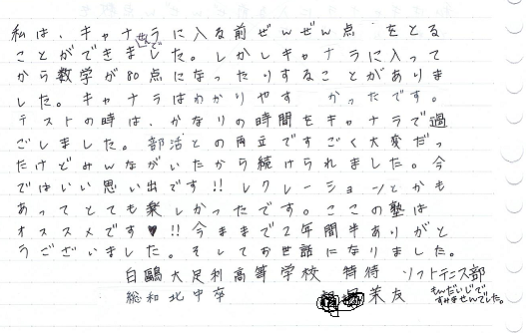 私は、キャナラに入る前ぜんぜん点 をとる
ことができました。しかしキャナラに入って
から数学が80点になったりすることがありま
した。キャナラはわかりやす かったです。
テストの時は、かなりの時間をキャナラで過
ごしました。部活との両立ですごく大変だっ
たけどみんながいたから続けられました。今
ではいい思い出です!!レクレーションとかも
あってとても楽しかったです。ここの塾は
オススメです♥!!今まで2年間半ありがと
うございました。そしてお世話になりました。
白鷗大足利高等学校 特待 ソフトテニス部
総和北中卒 茉友 もんだいじで
すみませんでした。